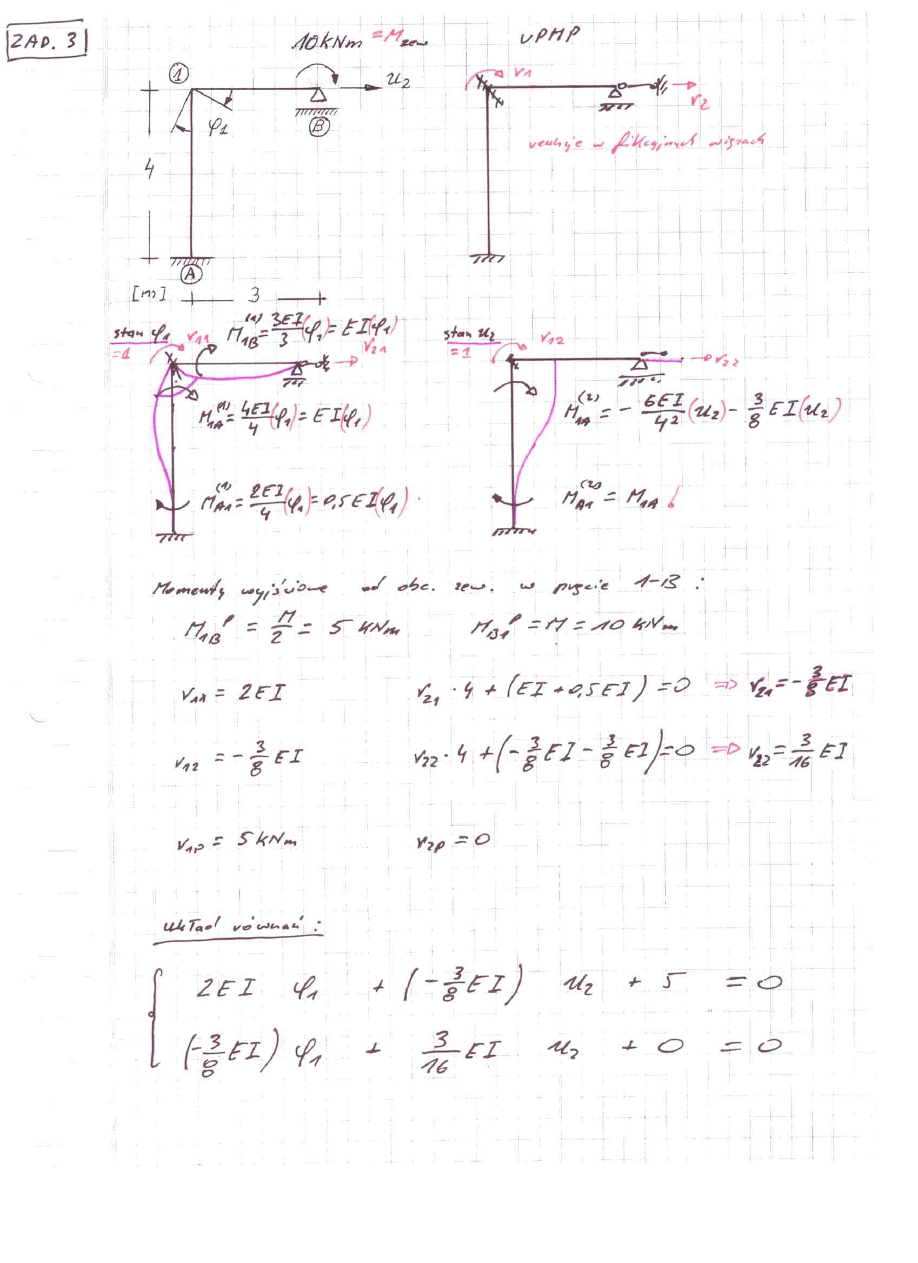 ZAD. 3
10 kNm = M zew
UPMP
1
u₂
φ₁
B
4
A
[m] 3
r₁
r₂
reakcje w fikcyjnych więzach
stan φ₁
=1
r₁₁
M₁B⁽¹⁾ = 3EI/3 (φ₁) = EI(φ₁)
r₂₁
M₁A⁽¹⁾ = 4EI/4 (φ₁) = EI(φ₁)
MA₁⁽¹⁾ = 2EI/4 (φ₁) = 0,5EI(φ₁)
stan u₂
=1
r₁₂
r₂₂
M₁A⁽²⁾ = - 6EI/4² (u₂) - 3/8 EI(u₂)
MA₁⁽²⁾ = M₁A !
Momenty wyjściowe od obc. zew. w pręcie 1-B :
M₁Bᴾ = M/2 = 5 kNm MB₁ᴾ = M = 10 kNm
r₁₁ = 2EI r₂₁ · 4 + (EI + 0,5EI) = 0 => r₂₁ = - 3/8 EI
r₁₂ = - 3/8 EI r₂₂ · 4 + (- 3/8 EI - 3/8 EI) = 0 => r₂₂ = 3/16 EI
r₁p = 5 kNm r₂p = 0
Układ równań :
2EI φ₁ + (- 3/8 EI) u₂ + 5 = 0
(- 3/8 EI) φ₁ + 3/16 EI u₂ + 0 = 0